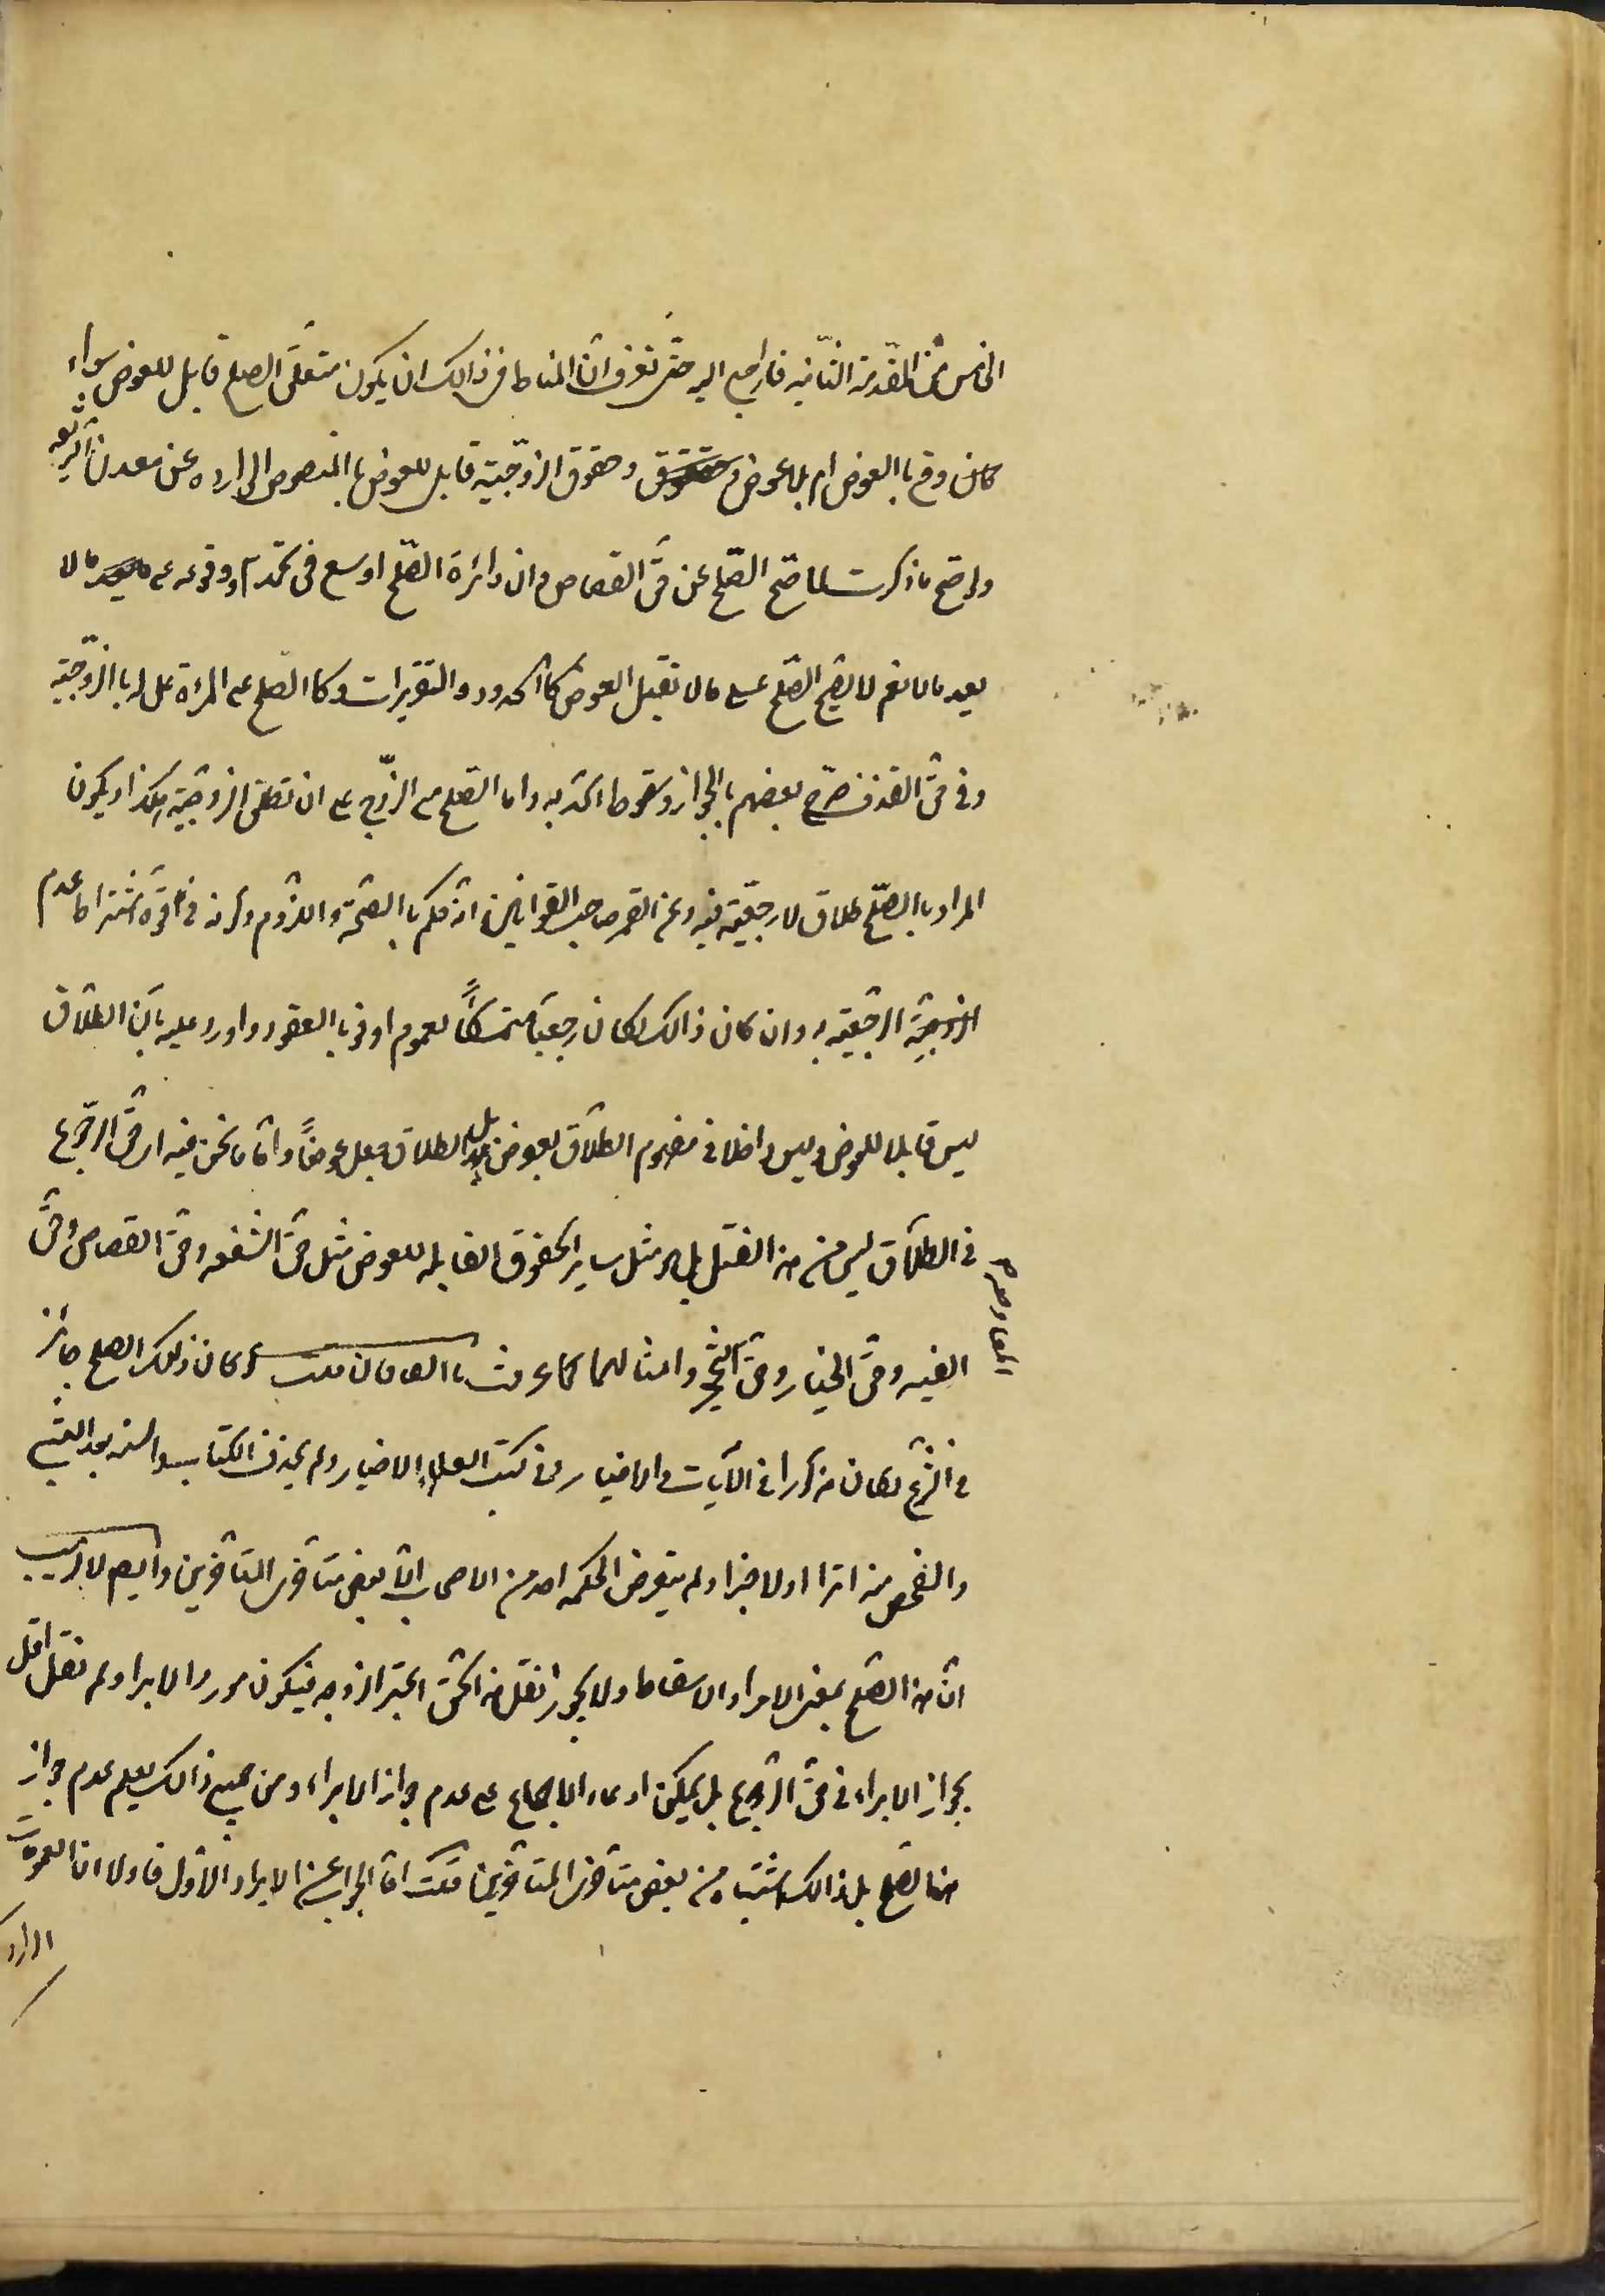 الخامس من المقدمة الثانية فارجع اليه حتى تعرف ان المناط فى ذالك ان يكون متعلق الصلح قابل للعوض سواء
كان وقع باالعوض ام بلا عوض و حقوق الزوجية قابل للعوض باالنصوص الوارده عن معدن الشريعه
ولو صح ما ذكرت لما صح الصلح عن حق القصاص و ان دائرة الصلح اوسع فى وقوعه على مالا
يعد مالا نعم لا يصح الصلح على مالا تقبل العوض كاالحدود والتعزيرات وكاالصلح على المراة على باالزوجية
وفى حق القذف صرح بعضهم باالجواز وسقوط الحد به واما الصلح مع الزوج على ان تطلق الزوجية هكذا و يكون
المراد باالصلح طلاق لا رجعية فيه وعن القمى صاحب القوانين انه حكم باالصحة واللزوم وانه فى قوة اشتراط عدم
الرجعية به وان كان ذالك لكان رجعيا متمسكاً لعموم اوفوا باالعقود واورد عليه بان الطلاق
ليس قابلا للعوض وليس داخلا فى مفهوم الطلاق بعوض بل الطلاق جعل عوضاً واما ما نحن فيه اى حق الرجوع
فى الطلاق ليس من هذا القبيل بل هو مثل ساير الحقوق القابله للعوض مثل حق الشفعه وحق القصاص وحق
الغيبه وحق الخيار وحق التحجير وامثالهما كما عرفت باالف فان قلت لو كان ذلك الصلح جائز
فى الشرع لكان مذكورا فى الآيات والاخبار وفى كتب العلماء الاخيار ولم يجد فى الكتاب والسنه بعد التتبع
والفحص منه اثرا و لا خبرا ولم يتعرض لحكمه احد من الاصحاب الا بعض متاخرى المتاخرين وايضا لا ريب
ان هذا الصلح بمعنى الابراء و الاسقاط ولا يجوز نقل هذا الحق الى غير الزوجه فيكون مورد الابراء ولم نقل احد
بجواز الابراء فى حق الرجوع بل يمكن ادعاء الاجماع على عدم جواز الابراء ومن جميع ذالك يعلم عدم جواز
هذا الصلح بل ذالك اشتباه من بعض متاخرى المتاخرين قلت اما الجواب عن الايراد الاول فاولا ان العمومات
الوارد